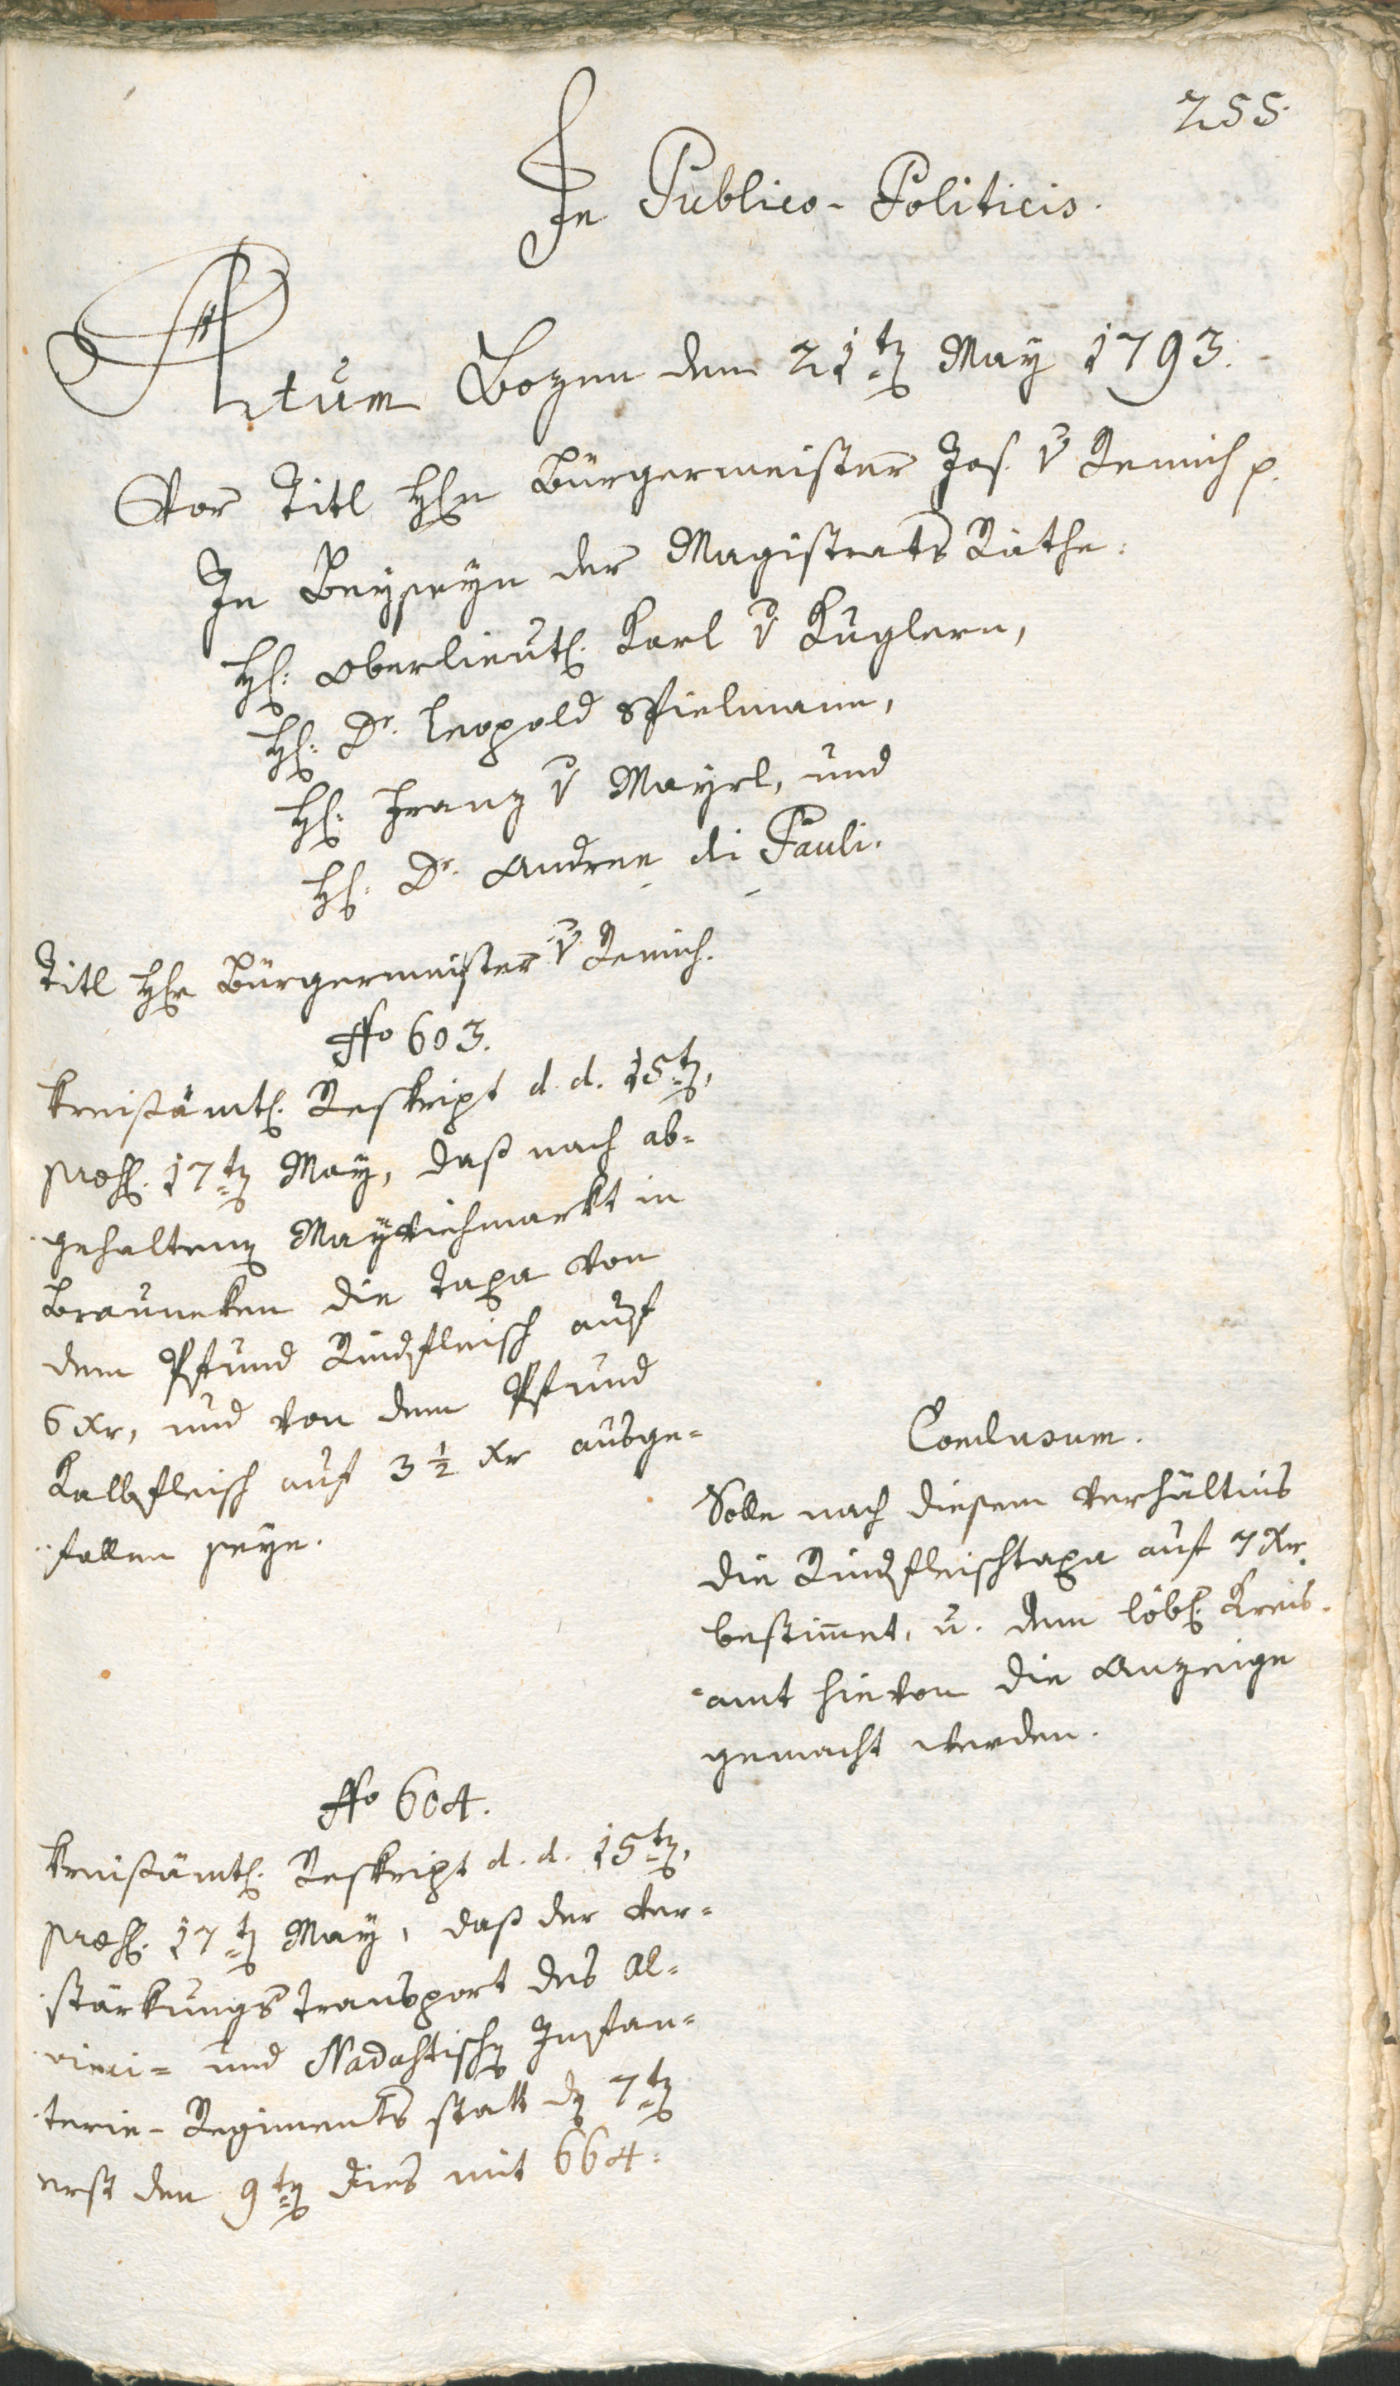 255.
In Publico-Politicis.
Actum Bozen dem 21ten May 1793.
Vor Titl Hhn Bürgermeister Jos. v Remich p.
In Beyseyn der Magistrats Räthe:
H: Oberlieutl. Karl v Kuglern,
H: Dr. Leopold Spielmann,
H: Franz v Mayrl, und
H: Dr. Andree di Pauli.
Titl Hhr Bürgermeister v Remich.
No 603.
Kreißämtl. Reskript d. d. 15ten,
præs. 17ten May, daß nach ab-
gehaltenen Mayviehmarkt in
Brauneken die Taxa von
dem Pfund Rindfleisch auf
6 xr, und von dem Pfund
Kalbfleisch auf 3 1/2 xr ausge-
fallen seye.
Conclusum.
Solle nach diesem Verhältnis
die Rindfleischtaxa auf 7 xr.
bestimmet, u. dem löbl. Kreis-
amt hievon die Anzeige
gemacht werden.
No 604.
Kreißämtl. Reskript d. d. 15ten,
præs. 17ten May, daß der Ver-
stärkungstransport des Al-
vinci- und Nadastischen Infan-
terie-Regiments statt den 7ten
erst den 9ten dies mit 664: